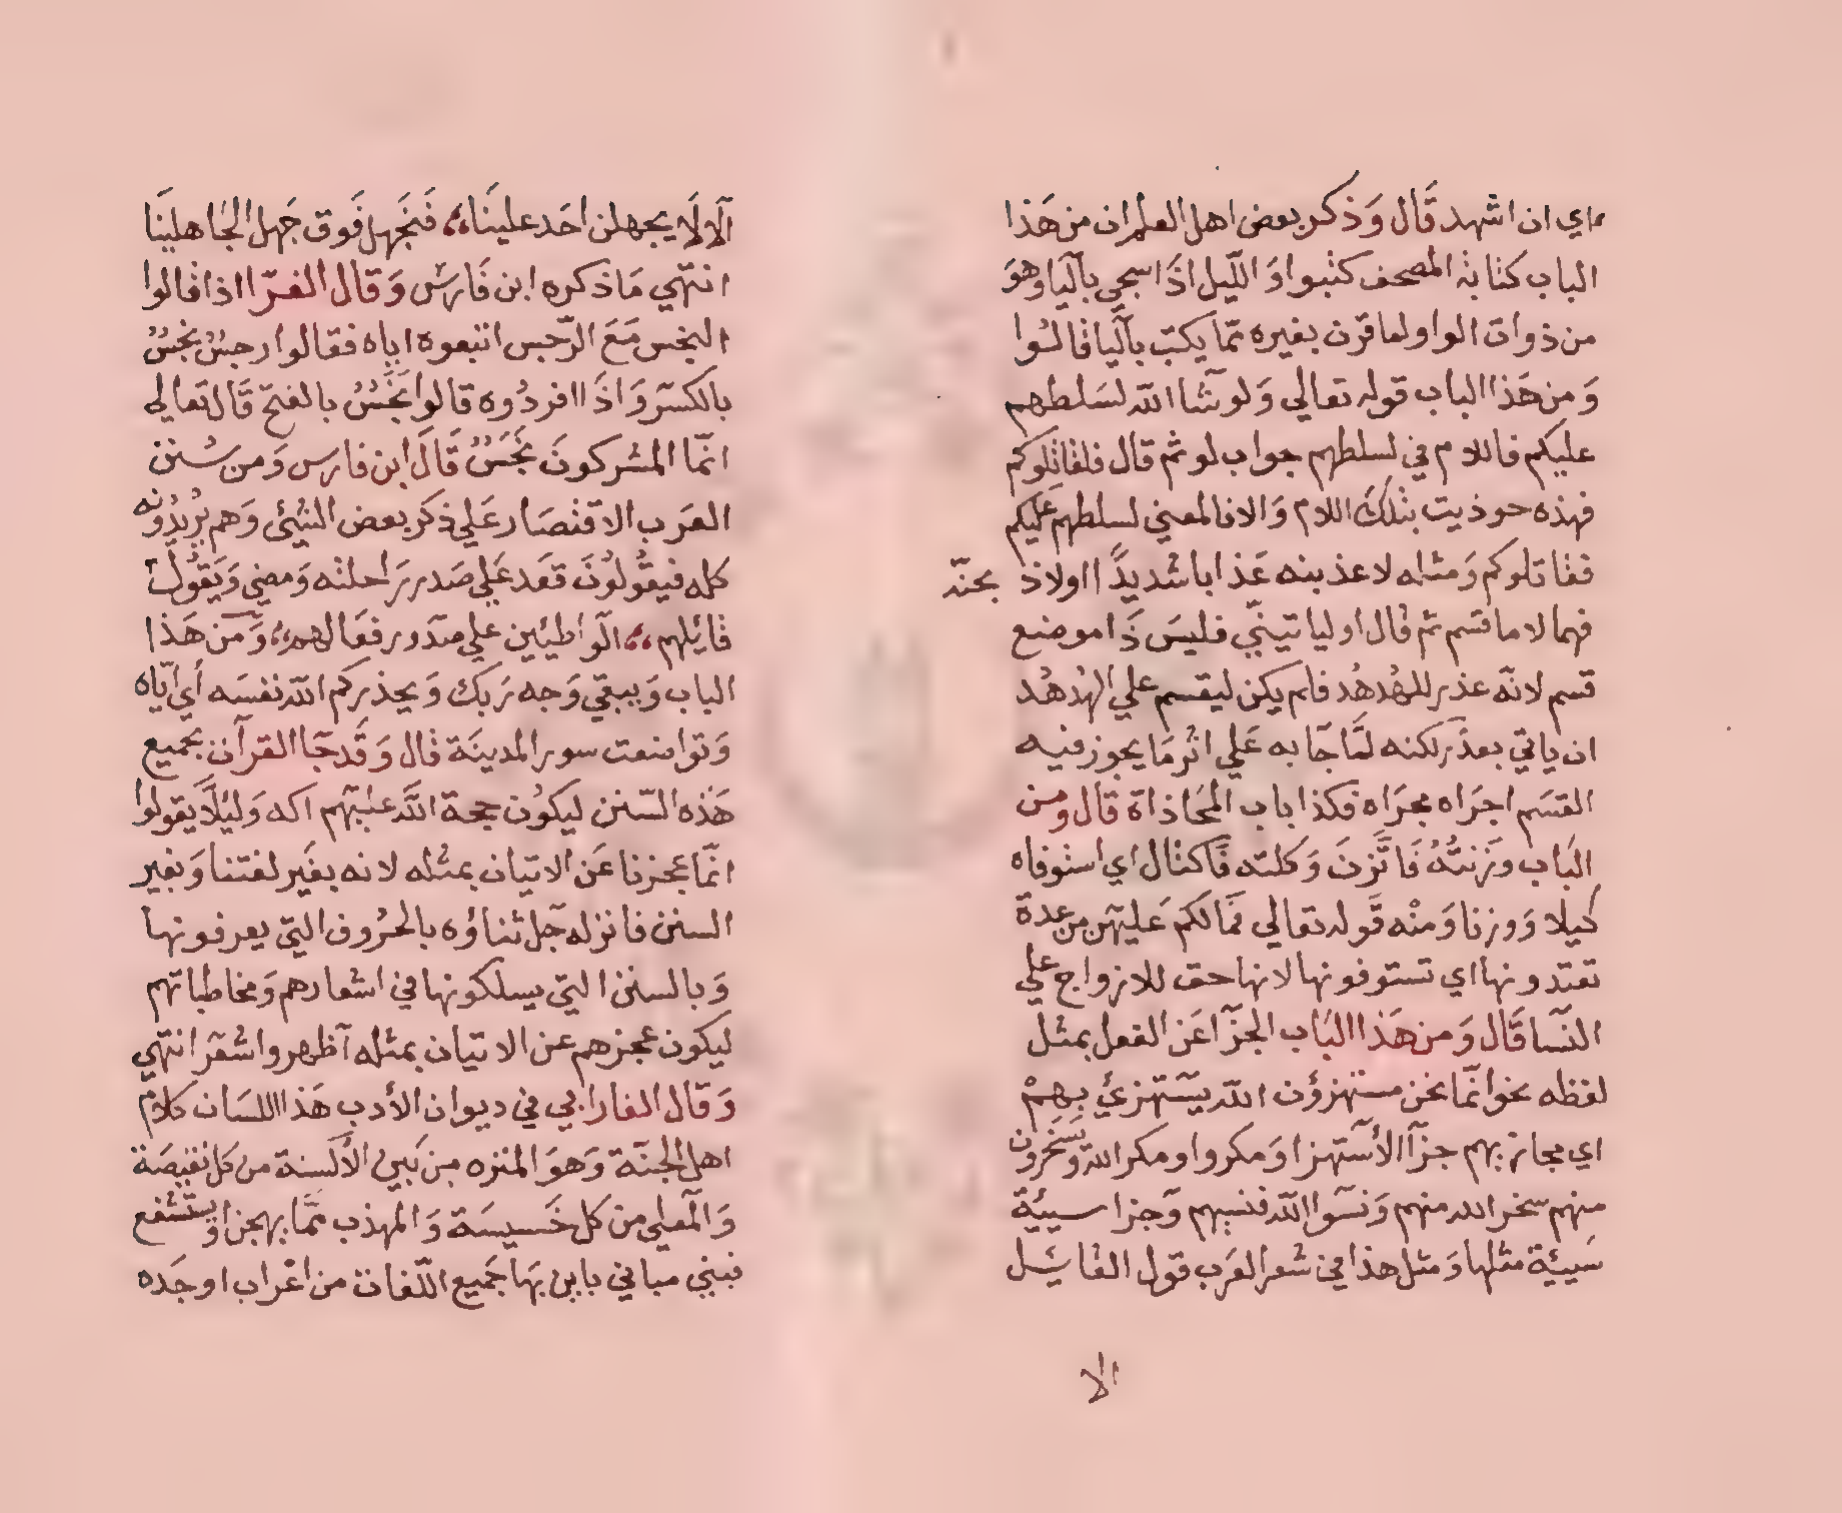 ماي ان اشهد قَال وَذكر بعض اهل العلم ان من هَذا
الباب كتابة المصحف كتبوا وَ اللّيل اذَا سجي بآليا وهوَ
من ذوات الواو لما قرن بغيره ممّا يكتب بآليا قالوا
وَ من هَذا الباب قوله تعالي وَلو شآ الله لسَلطهم
عليكم فاللام في لسلطهم جواب لو ثم قال فلقاتلوكم
فهذه حوذيت بتلك اللام وَ الا فالمعني لسلطهم عَليكم
فقاتلوكم وَمثله لاعذبنه عَذابا شديدًا اولاذ بحنّه
فهما لاما قسَم ثم قال اوليا تينّي فليسَ ذَا موضع
قسم لانّه عذر للهُدهُد فلم يكن ليقسم علي الهُدهُد
ان ياتي بعذر لكنه لمَّا جَا به عَلي اثر مَا يجوز فيه
القسَم اجرَاه مجرَاه فكذا باب المحَاذاة قال ومن
البَاب وزَنتُهُ فَاتَّزنَ وَكلته فَاكتال اي استوفاه
كيلا وَوزنا وَمنْه قَوله تعالي فمَالكم عَليهن من عدة
تعتدونها اي تستوفونها لانها حق للازواج علي
النّسا قَال وَمن هَذا البَاب الجزَآ عَن الفعل بمثل
لفظه نحو انّما نحن مستهزؤن الله يستهزئ بهمْ
اي مجازيهم جزآ الأستهزا وَمكروا ومكر الله وَ يَسْخَرون
منهم سخر الله منهم وَنسَوا الله فنسيهم وَجزا سيئة
سَيئة مثلها وَمثل هذا في شعر العَرب قول القايَل
الا
آلا لَا يجهلن احَد علينَا ،، فَنجَهل فَوق جَهل الجَاهلينَا
انتهي مَا ذكره ابن فَارسْ وَقال الفرّا اذا قالوا
النجس مَعَ الرّجس اتبعوه اياه فقالوا رجسٌ نجسٌ
بالكسر وَاذَا افردُوه قالوا نَجَسٌ بالفتح قَال تعالي
انّما المشركونَ نجَسٌ قَالَ ابن فارس وَمن سُنن
العرَب الاقتصَار عَلي ذكر بعض الشيْئ وَهم يُريدُونه
كله فيقُولوُنَ قعَد عَلي صَدر رَاحلته وَمضي وَيَقُول
قايلهم ،، الوَاطئين علي صدَور نعَالهم ،، وَمن هَذا
الباب وَيبقي وَجه رَبك وَيحذركم الله نفسَه أي ايّاه
وَتواضعت سور المدينَة قال وَقَد جَا القرآن بجميع
هَذه السّنن ليكوُن حجة اللَّه عليْهم اكه وَليُلاَّ يقولوا
انّما عجزنا عَن الاتيان بمثله لانه بغَير لغتنا وَبغير
السنن فانزله جَل ثناؤه بالحُروف التي يعرفونها
وَبالسنن التي يسلكونها في اشعارهم وَمخاطباتهم
ليكون عجزهم عن الاتيان بمثله آظهر واشهَر انتهي
وَقال الفارابي في ديوان الأدب هَذا اللسَان كلام
اهل الجنّة وَهوَ المنزه من بَين الألسنة من كل نقيصَة
وَالمعلي من كل خَسيسَة وَالمهذب ممَّا يهجن اوَيستشنع
فبني مباني باين بهَا جَميع اللّغات من اعْراب اوجَده